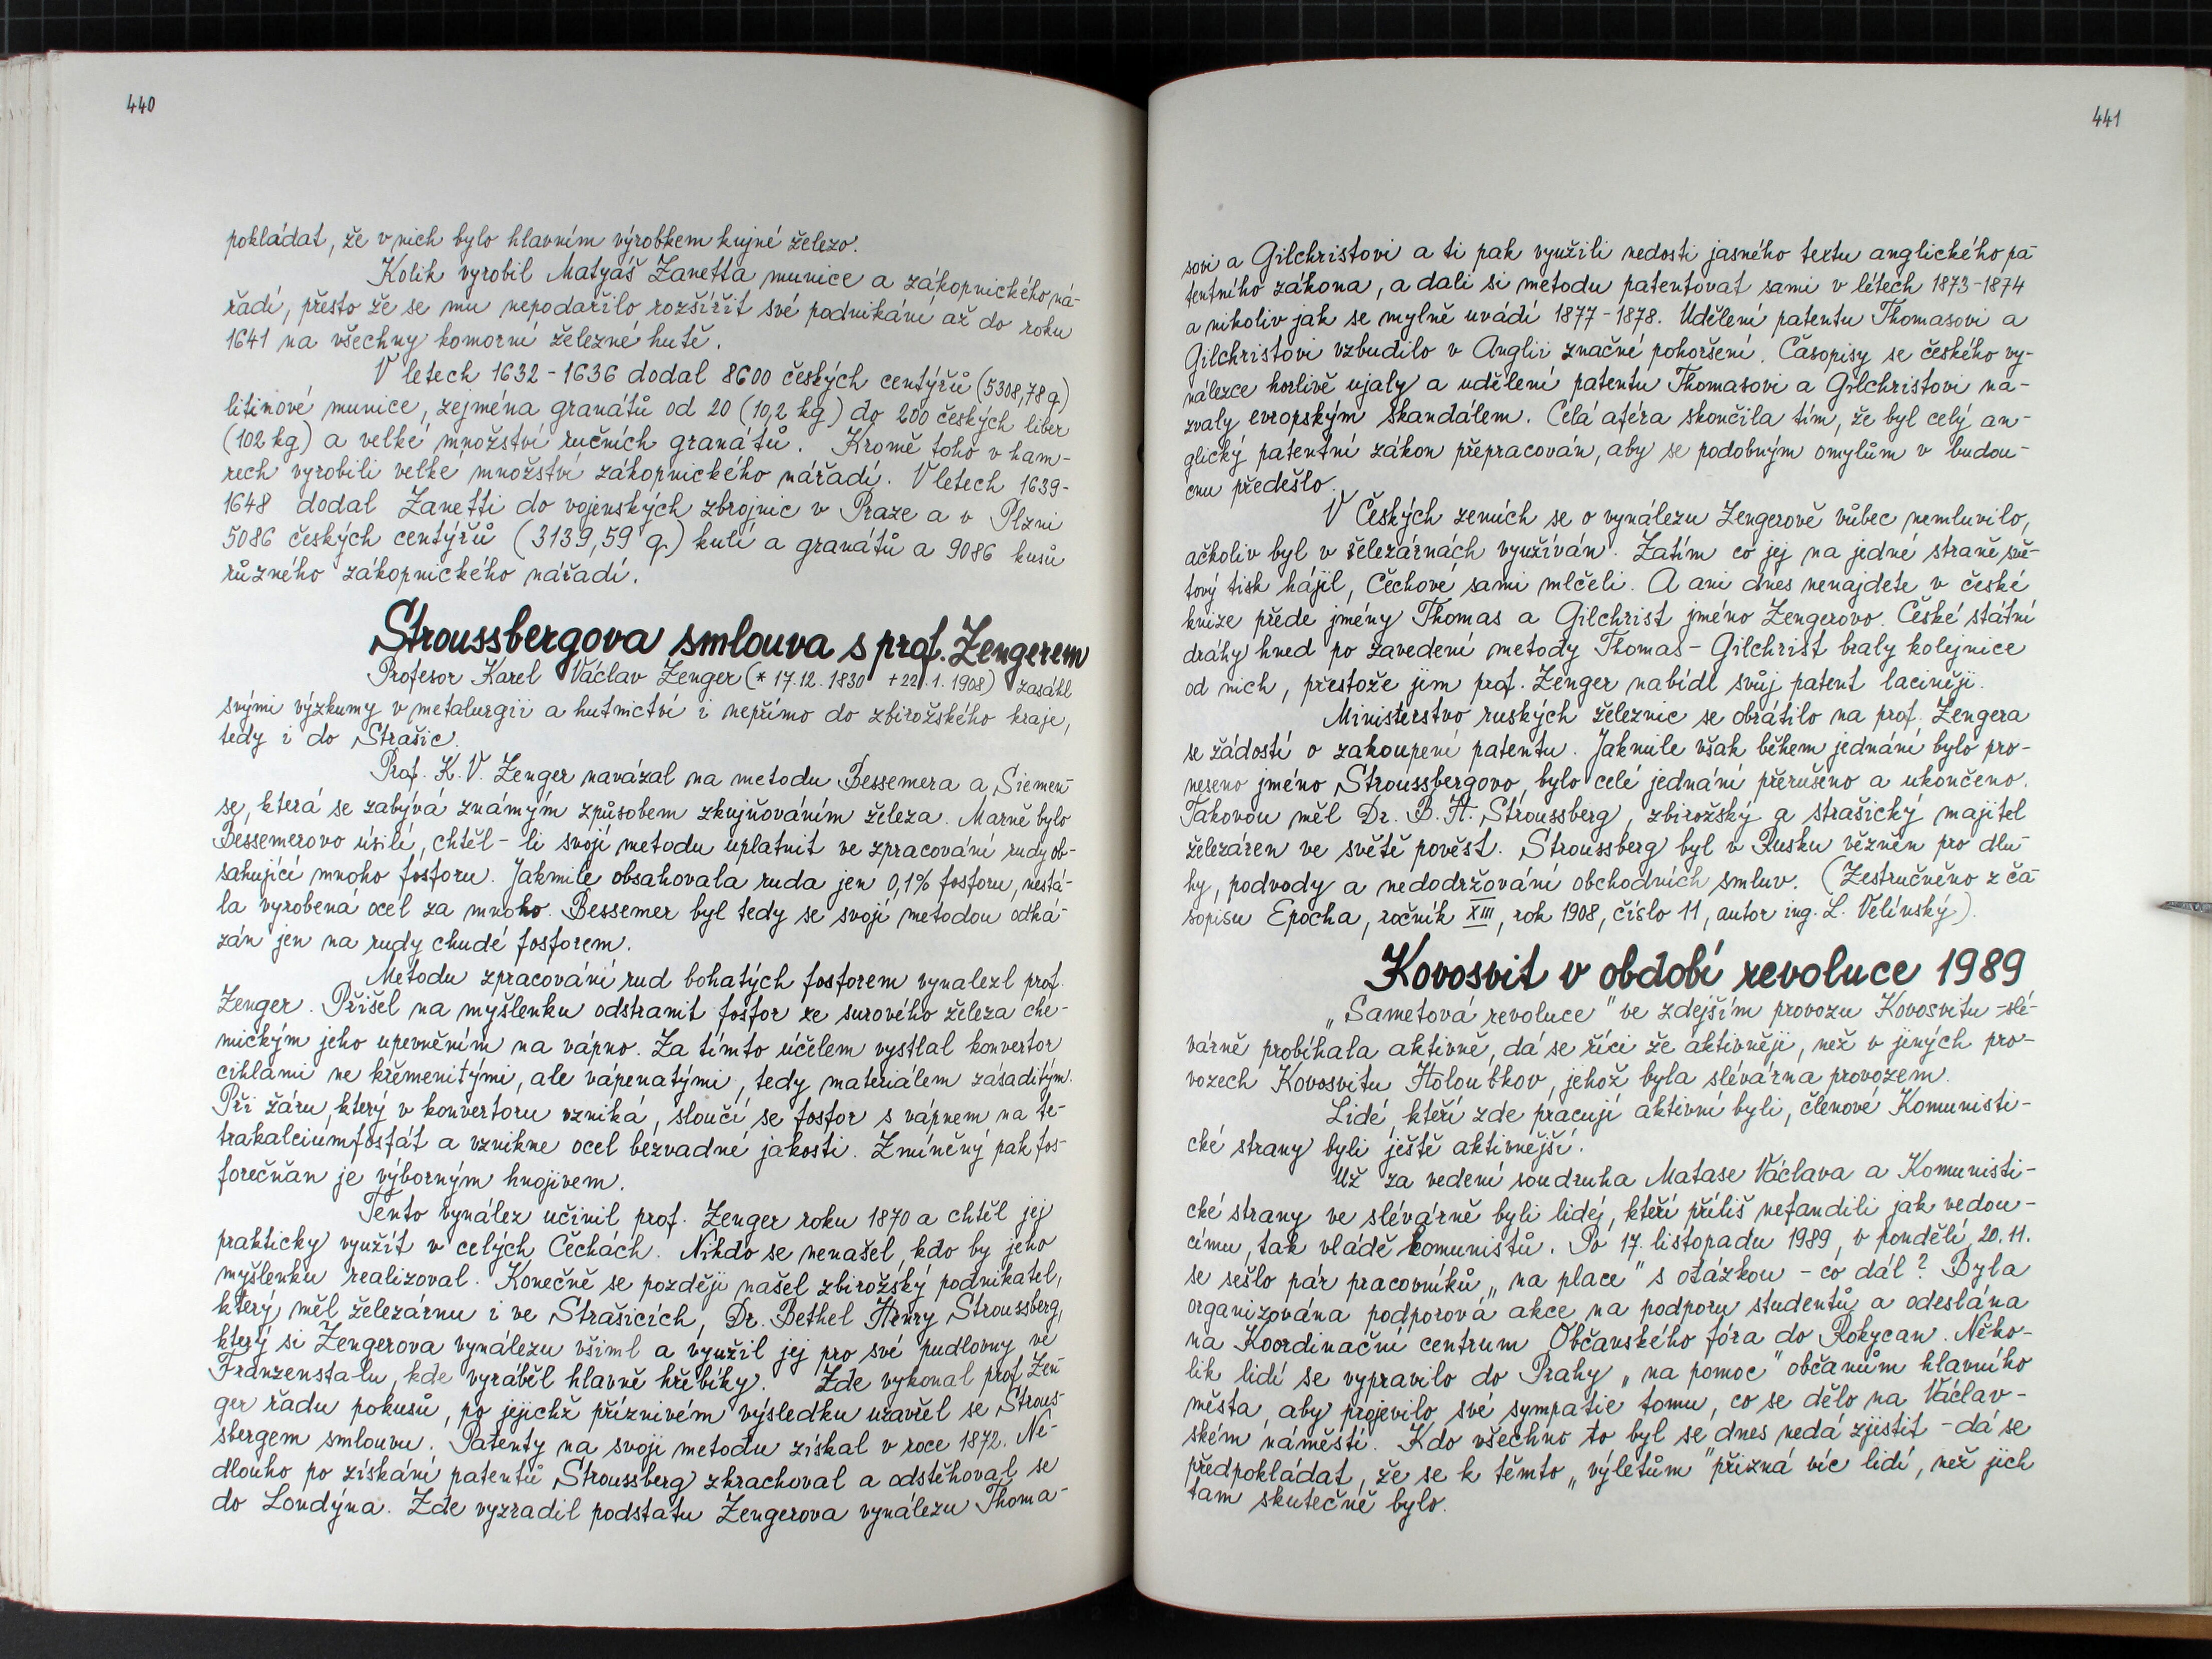 440
pokládat, že v nich bylo hlavním výrobkem kujné železo.
Kolik vyrobil Matyáš Zanetta munice a zákopnického ná-
řadí, přesto že se mu nepodařilo rozšířit své podnikání až do roku
1641 na všechny komorní železné hutě.
V letech 1632 - 1636 dodal 8600 českých centýřů (5308,78 q)
litinové munice, zejména granátů od 20 (10,2 kg) do 200 českých liber
(102 kg) a velké množství ručních granátů. Kromě toho v ham-
rech vyrobili velke množství zákopnického nářadí. V letech 1639-
1648 dodal Zanetti do vojenských zbrojnic v Praze a v Plzni
5086 českých centýřů (3139,59 q) kulí a granátů a 9086 kusů
různého zákopnického nářadí.
Stroussbergova smlouva s prof. Zengerem
Profesor Karel Václav Zenger (* 17.12. 1830 + 22.1. 1908) zasáhl
svými výzkumy v metalurgii a hutnictví i nepřímo do zbirožského kraje,
tedy i do Strašic.
Prof. K. V. Zenger navázal na metodu Bessemera a Siemen-
se, která se zabývá známým způsobem zkujňováním železa. Marně bylo
Bessemerovo úsilí, chtěl - li svojí metodu uplatnit ve zpracování rudy ob-
sahující mnoho fosforu. Jakmile obsahovala ruda jen 0,1% fosforu, nestá-
la vyrobená ocel za mnoho. Bessemer byl tedy se svojí metodou odká-
zán jen na rudy chudé fosforem.
Metodu zpracování rud bohatých fosforem vynalezl prof.
Zenger. Přišel na myšlenku odstranit fosfor ze surového železa che-
mickým jeho upevněním na vápno. Za tímto účelem vystlal konvertor
cihlami ne křemenitými, ale vápenatými, tedy materiálem zásaditým.
Při žáru, který v konvertoru vzniká, sloučí se fosfor s vápnem na te-
trakalciumfosfát a vznikne ocel bezvadné jakosti. Zmíněný pak fos-
forečňan je výborným hnojivem.
Tento vynález učinil prof. Zenger roku 1870 a chtěl jej
prakticky využít v celých Čechách. Nikdo se nenašel, kdo by jeho
myšlenku realizoval. Konečně se později našel zbirožský podnikatel,
který měl železárnu i ve Strašicích, Dr. Bethel Henry Stroussberg,
který si Zengerova vynálezu všiml a využil jej pro své pudlovny ve
Franzenstalu, kde vyráběl hlavně hřebíky. Zde vykonal prof. Zen-
ger řadu pokusů, po jejichž příznivém výsledku uzavřel se Strous-
sbergem smlouvu. Patenty na svoji metodu získal v roce 1872. Ne-
dlouho po získání patentů Stroussberg zkrachoval a odstěhoval se
do Londýna. Zde vyzradil podstatu Zengerova vynálezu Thoma-
441
sovi a Gilchristovi a ti pak využili nedosti jasného textu anglického pa-
tentního zákona, a dali si metodu patentovat sami v létech 1873-1874
a nikoliv jak se mylně uvádí 1877 - 1878. Udělení patentu Thomasovi a
Gilchristovi vzbudilo v Anglii značné pohoršení. Časopisy se českého vy-
nálezce horlivě ujaly a udělení patentu Thomasovi a Gilchristovi na-
zvaly evropským skandálem. Celá aféra skončila tím, že byl celý an-
glický patentní zákon přepracován, aby se podobným omylům v budou-
cnu předešlo.
V Českých zemích se o vynálezu Zengerově vůbec nemluvilo,
ačkoliv byl v železárnách využíván. Zatím co jej na jedné straně svě-
tový tisk hájil, Čechové sami mlčeli. A ani dnes nenajdete v české
knize přede jmény Thomas a Gilchrist jméno Zengerovo. České státní
dráhy hned po zavedení metody Thomas - Gilchrist braly kolejnice
od nich, přestože jim prof. Zenger nabídl svůj patent laciněji.
Ministerstvo ruských železnic se obrátilo na prof. Zengera
se žádostí o zakoupení patentu. Jakmile však během jednání bylo pro-
neseno jméno Stroussbergovo, bylo celé jednání přerušeno a ukončeno.
Takovou měl Dr. B. H. Stroussberg, zbirožský a strašický majitel
železáren ve světě pověst. Stroussberg byl v Rusku vězněn pro dlu-
hy, podvody a nedodržování obchodních smluv. (Zestručněno z ča-
sopisu Epocha, ročník XIII, rok 1908, číslo 11, autor ing. L. Velínský).
Kovosvit v období revoluce 1989
„Sametová revoluce" ve zdejším provozu Kovosvitu - slé-
várně probíhala aktivně, dá se říci že aktivněji, než v jiných pro-
vozech Kovosvitu Holoubkov, jehož byla slévárna provozem.
Lidé, kteří zde pracují aktivní byli, členové Komunisti-
cké strany byli ještě aktivnější.
Už za vedení soudruha Matase Václava a Komunisti-
cké strany ve slévárně byli lidéj, kteří příliš nefandili jak vedou-
címu, tak vládě komunistů. Po 17. listopadu 1989, v pondělí, 20.11.
se sešlo pár pracovníků „na place" s otázkou - co dál? Byla
organizována podporová akce na podporu studentů a odeslána
na Koordinační centrum Občanského fóra do Rokycan. Něko-
lik lidí se vypravilo do Prahy „na pomoc" občanům hlavního
města, aby projevilo své sympatie tomu, co se dělo na Václav-
ském náměstí. Kdo všechno to byl se dnes nedá zjistit - dá se
předpokládat, že se k těmto „výletům" přizná víc lidí, než jich
tam skutečně bylo.